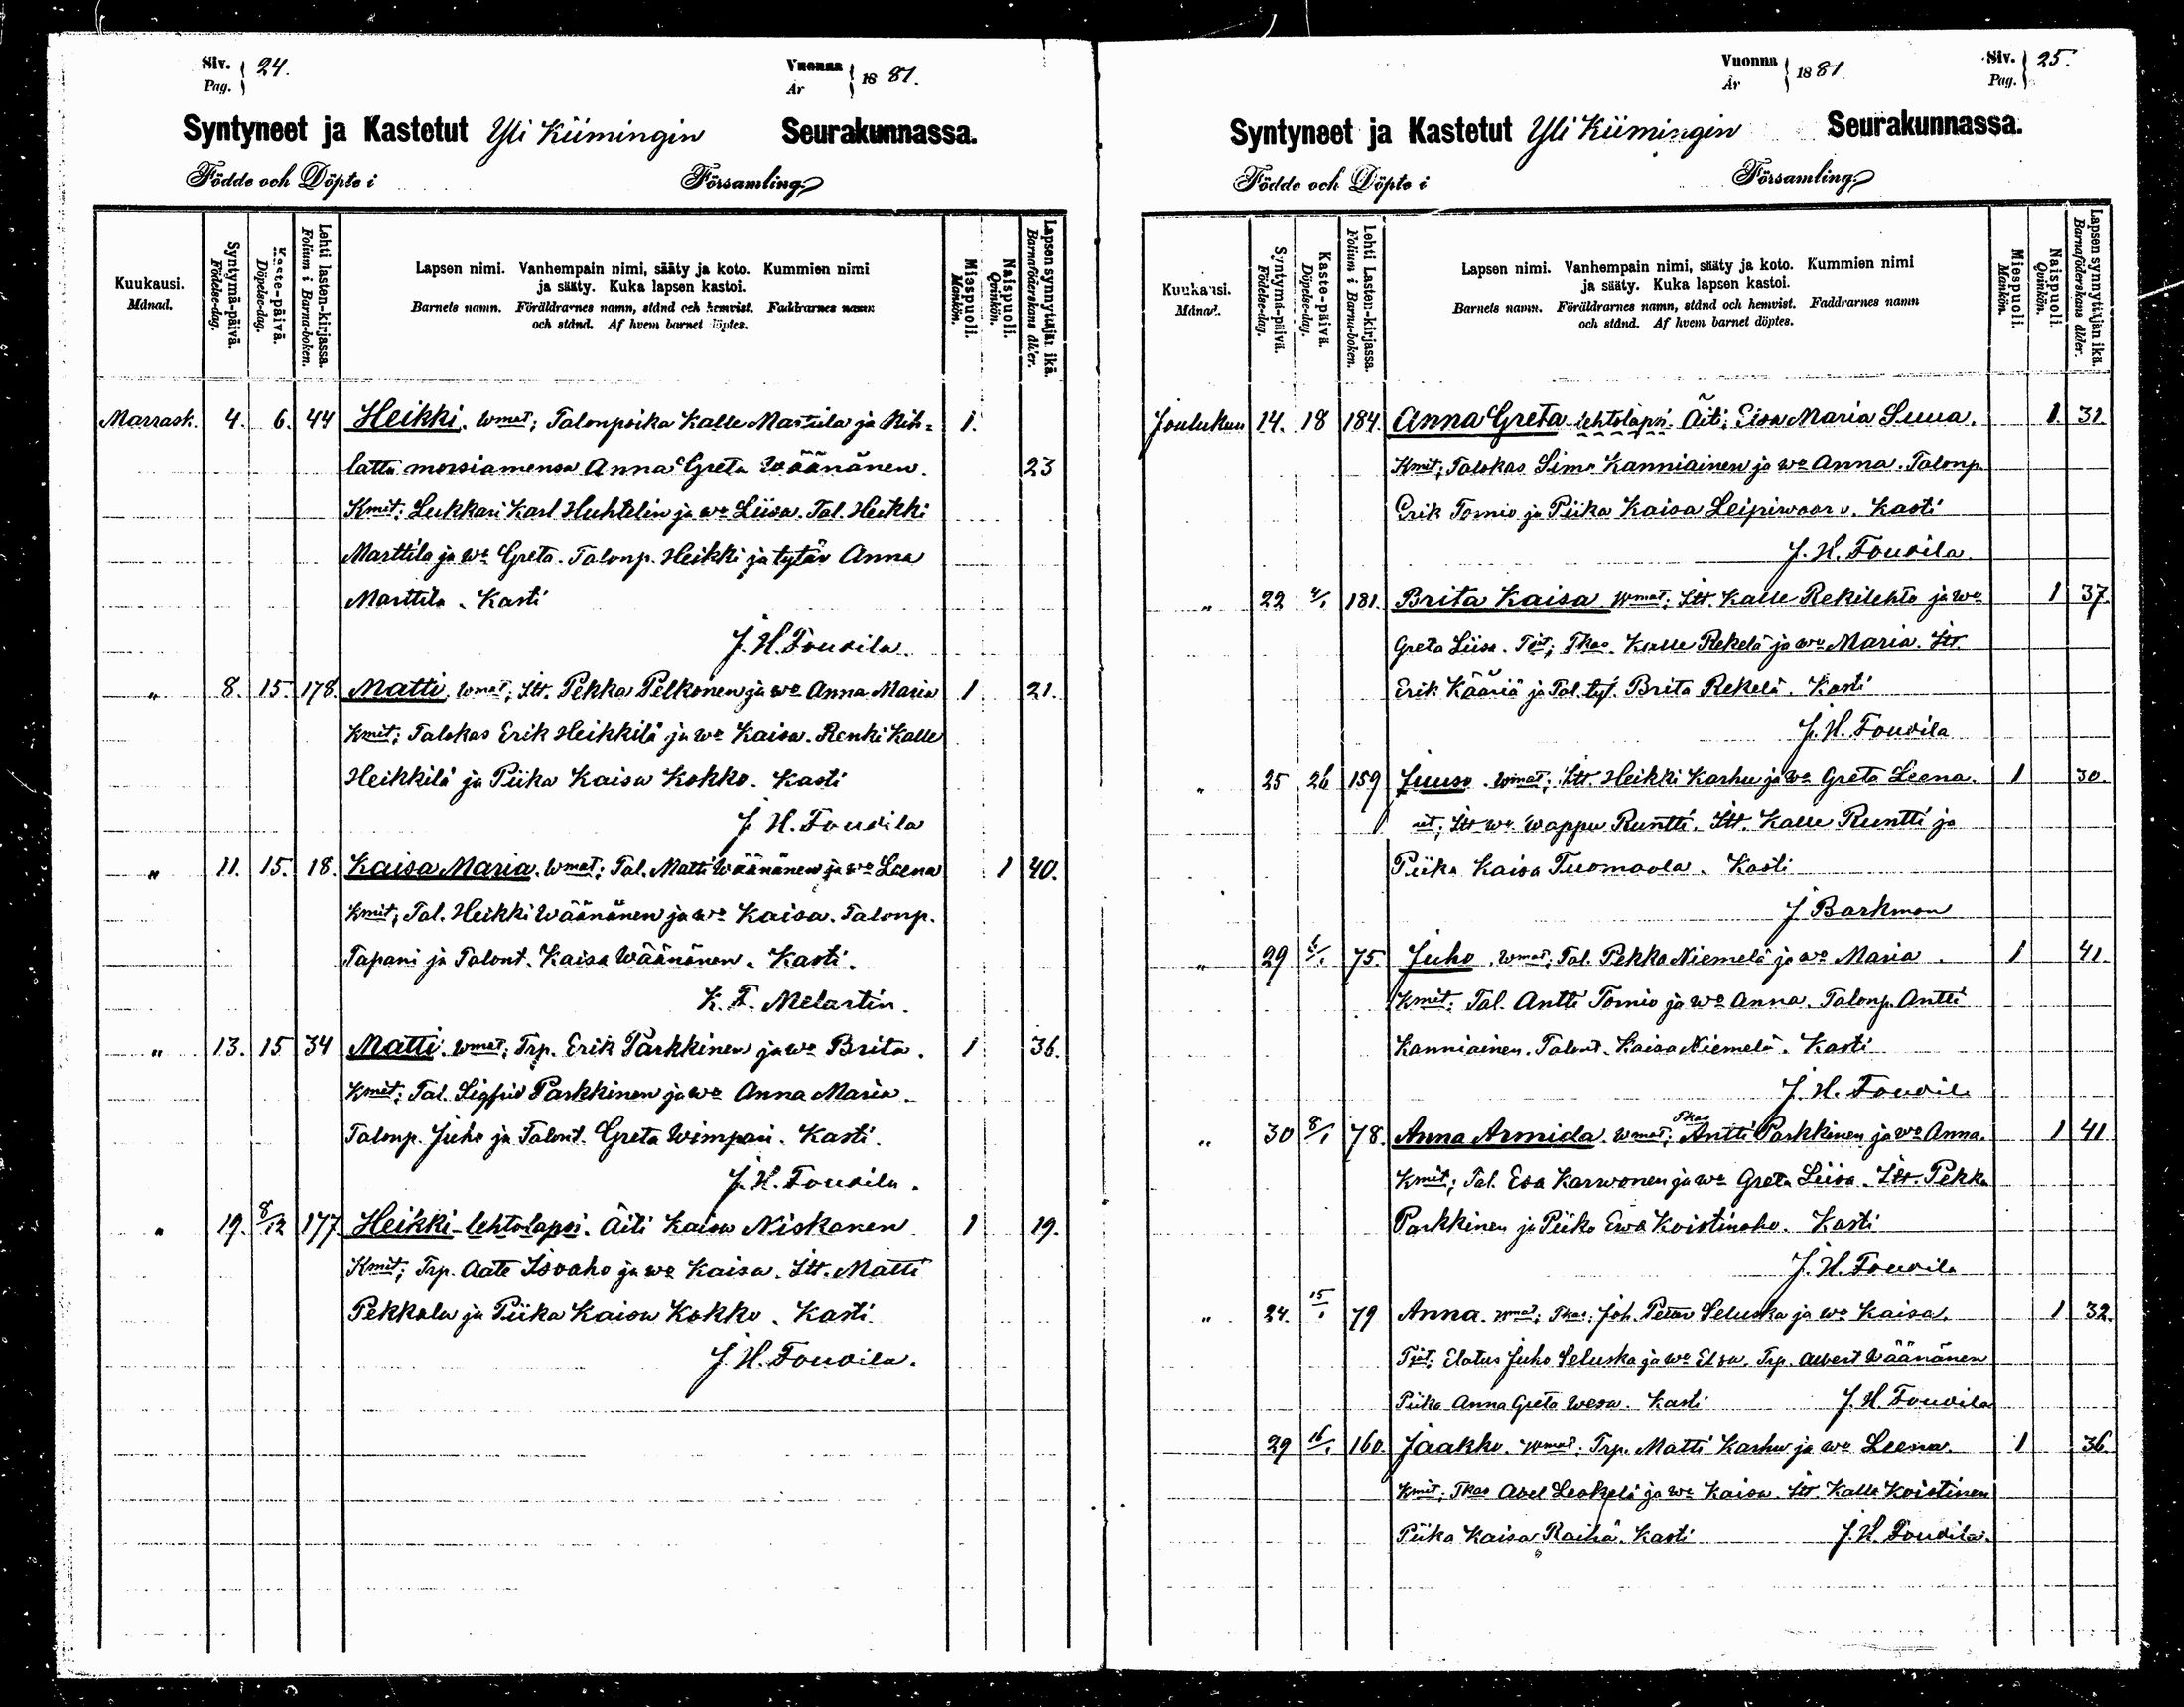 Siv. Pag. } 24. Vuonna År } 1881.
Syntyneet ja Kastetut Yli Kiimingin Seurakunnassa.
Födde och Döpte i Församling.
Kuukausi. Månad.
Syntymä-päivä. Födelse-dag.
Kaste-päivä. Döpelse-dag.
Lehti lasten-kirjassa. Folium i Barna-boken.
Lapsen nimi. Vanhempain nimi, sääty ja koto. Kummien nimi
ja sääty. Kuka lapsen kastoi.
Barnets namn. Föräldrarnes namn, stånd och hemvist. Faddrarnes namn
och stånd. Af hvem barnet döptes.
Miespuoli. Mankön.
Naispuoli. Qvinkön.
Lapsen synnyttäjän ikä. Barnaföderskans ålder.
Marrask. 4. 6. 44 Heikki. Wmat; Talonpoika Kalle Marttila ja Kih= 1.
lattu morsiamensa Anna Greta Wäänänen. 23
Kmit: Lukkari Karl Huhtelin ja wo Liisa. Tal. Heikki
Marttila ja wo Greta. Talonp. Heikki ja tytär Anna
Marttila. Kasti
J. H. Touvila.
" 8. 15. 178. Matti. Wmat; Itt. Pekka Pelkonen ja wo Anna Maria 1 21.
Kmit; Talokas Erik Heikkilä ja wo Kaisa. Renki Kalle
Heikkilä ja Piika Kaisa Kokko. Kasti
J. H. Touvila
" 11. 15. 18. Kaisa Maria. Wmat; Tal. Matti Wäänänen ja wo Leena 1 40.
Kmit; Tal. Heikki Wäänänen ja wo Kaisa. Talonp.
Tapani ja Talont. Kaisa Wäänänen. Kasti.
K. F. Melartin.
" 13. 15 34 Matti. Wmat; Trp. Erik Parkkinen ja wo Brita. 1 36.
Kmit; Tal. Sigfrid Parkkinen ja wo Anna Maria.
Talonp. Juho ja Talont. Greta Wimpari. Kasti.
J. H. Touvila.
" 19. 8/12 177 Heikki-lehtolapsi. Äiti Kaisa Niskanen 1 19.
Kmit; Trp. Aate Isoaho ja wo Kaisa. Itt. Matti
Pekkala ja Piika Kaisa Kokko. Kasti.
J. H. Touvila.
Vuonna År } 1881 Siv. Pag. } 25.
Syntyneet ja Kastetut Yli Kiimingin Seurakunnassa.
Födde och Döpte i Församling.
Kuukausi. Månad.
Syntymä-päivä. Födelse-dag.
Kaste-päivä. Döpelse-dag.
Lehti Lasten-kirjassa. Folium i Barna-boken.
Lapsen nimi. Vanhempain nimi, sääty ja koto. Kummien nimi
ja sääty. Kuka lapsen kastoi.
Barnets namn. Föräldrarnes namn, stånd och hemvist. Faddrarnes namn
och stånd. Af hvem barnet döptes.
Miespuoli. Mankön.
Naispuoli. Qvinkön.
Lapsen synnyttäjän ikä. Barnaföderskans ålder.
Joulukuu 14. 18 184. Anna Greta lehtolapsi. Äiti; Eisa Maria Suua. 1. 31.
Kmit; Talokas Simo Kanniainen ja wo Anna. Talonp.
Erik Tornio ja Piika Kaisa Leipiwaara. Kasti
J. H. Touvila.
" 22 4/1 181. Brita Kaisa Wmat; Itt. Kalle Rekilehto ja wo 1 37.
Greta Liisa. Tst; Tkas. Kalle Rekelä ja wo Maria. Itt.
Erik Kääriä ja Tal. tyt. Brita Rekelä. Kasti
J. H. Touvila
" 25 26 159 Juuso. Wmat; Itt. Heikki Karhu ja wo Greta Leena. 1 30.
it; Itt wo Wappu Runtti. Itt. Kalle Runtti ja
Piika Kaisa Tuomaola. Kasti
J Barkman
" 29 75. Juho. Wmat; Tal. Pekka Niemelä ja wo Maria. 1 41.
Kmit; Tal. Antti Tornio ja wo Anna. Talonp. Antti
Kanniainen. Talont. Kaisa Niemelä. Kasti
J. H. Touvil
" 30 8/1 78. Anna Armida. Wmat; Tkas Antti Parkkinen ja wo Anna. 1 41
Kmit; Tal. Esa Karwonen ja wo Greta Liisa. Itt. Pekka
Parkkinen ja Piika Ewa Koistinaho. Kasti
J. H. Touvila
" 24. 15/1 79 Anna. Wmat; Tkas. Joh. Petter Seluska ja wo Kaisa. 1 32.
Tst; Elatus Juho Seluska ja wo Elsa. Trp. Awert Wäänänen
Piika Anna Greta Wesa. Kasti J. H. Touvila
29 16/1 160. Jaakko. Wmat; Trp. Matti Karhu ja wo Leena. 1 36.
Kmit; Tkas Abel Leskelä ja wo Kaisa. Itt. Kalle Koistinen
Piika Kaisa Raihä. Kasti J. H. Touvila.